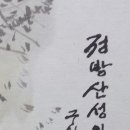 정방산성의
구